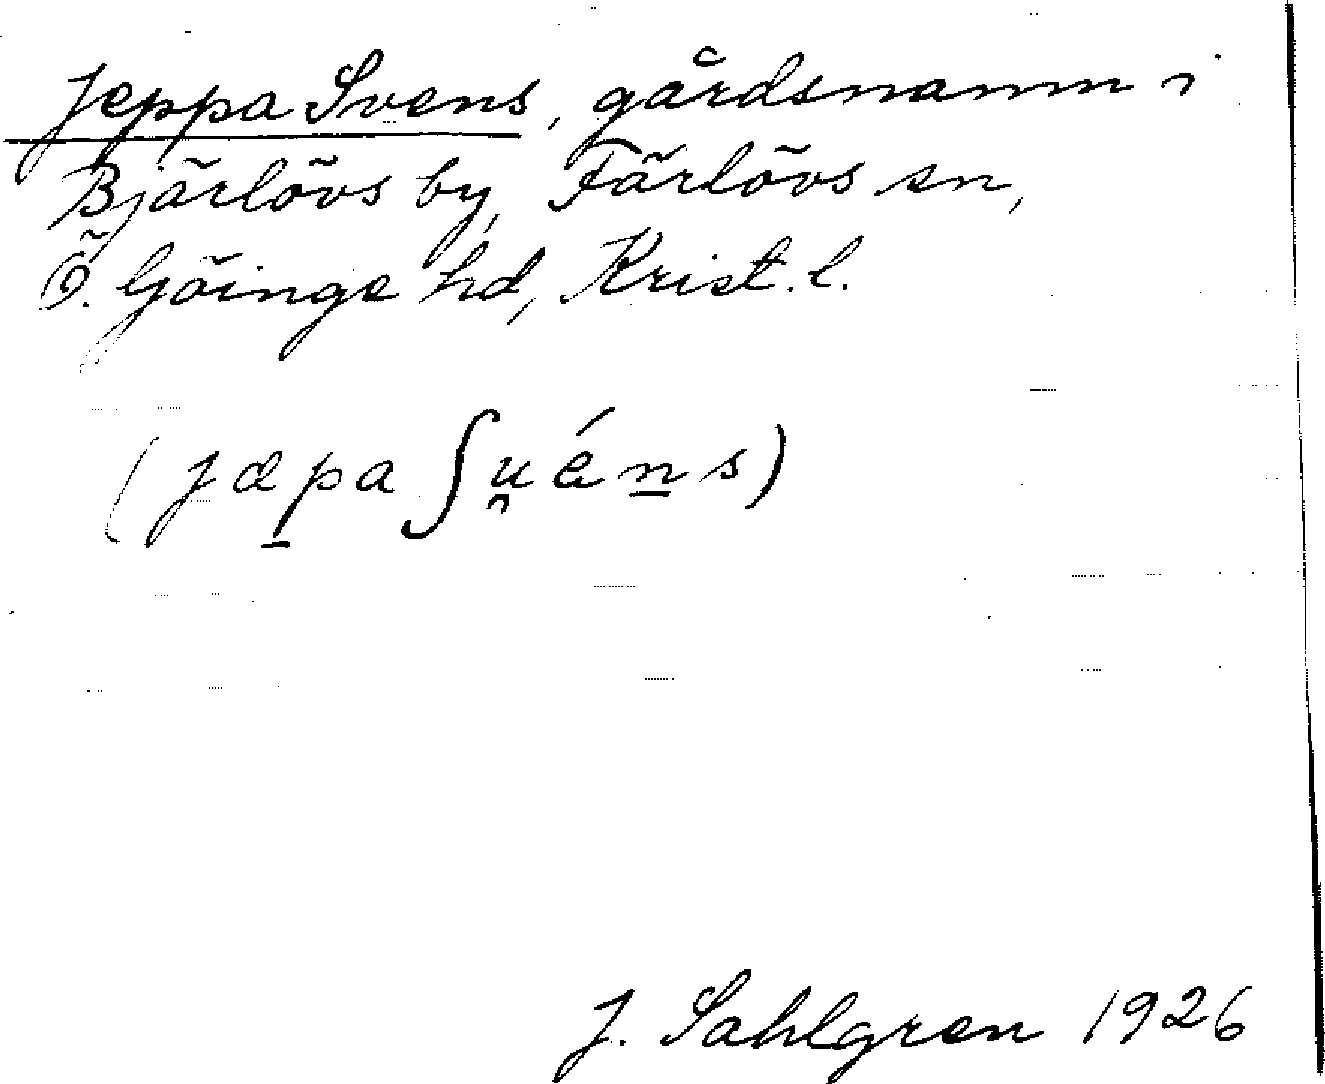 Jeppa Svens, gårdsnamn i
Bjärlövs by, Färlövs sn,
Ö. Göinge hd, Krist. l.
(jæp̲a ʃu̯én̲s)
J. Sahlgren 1926